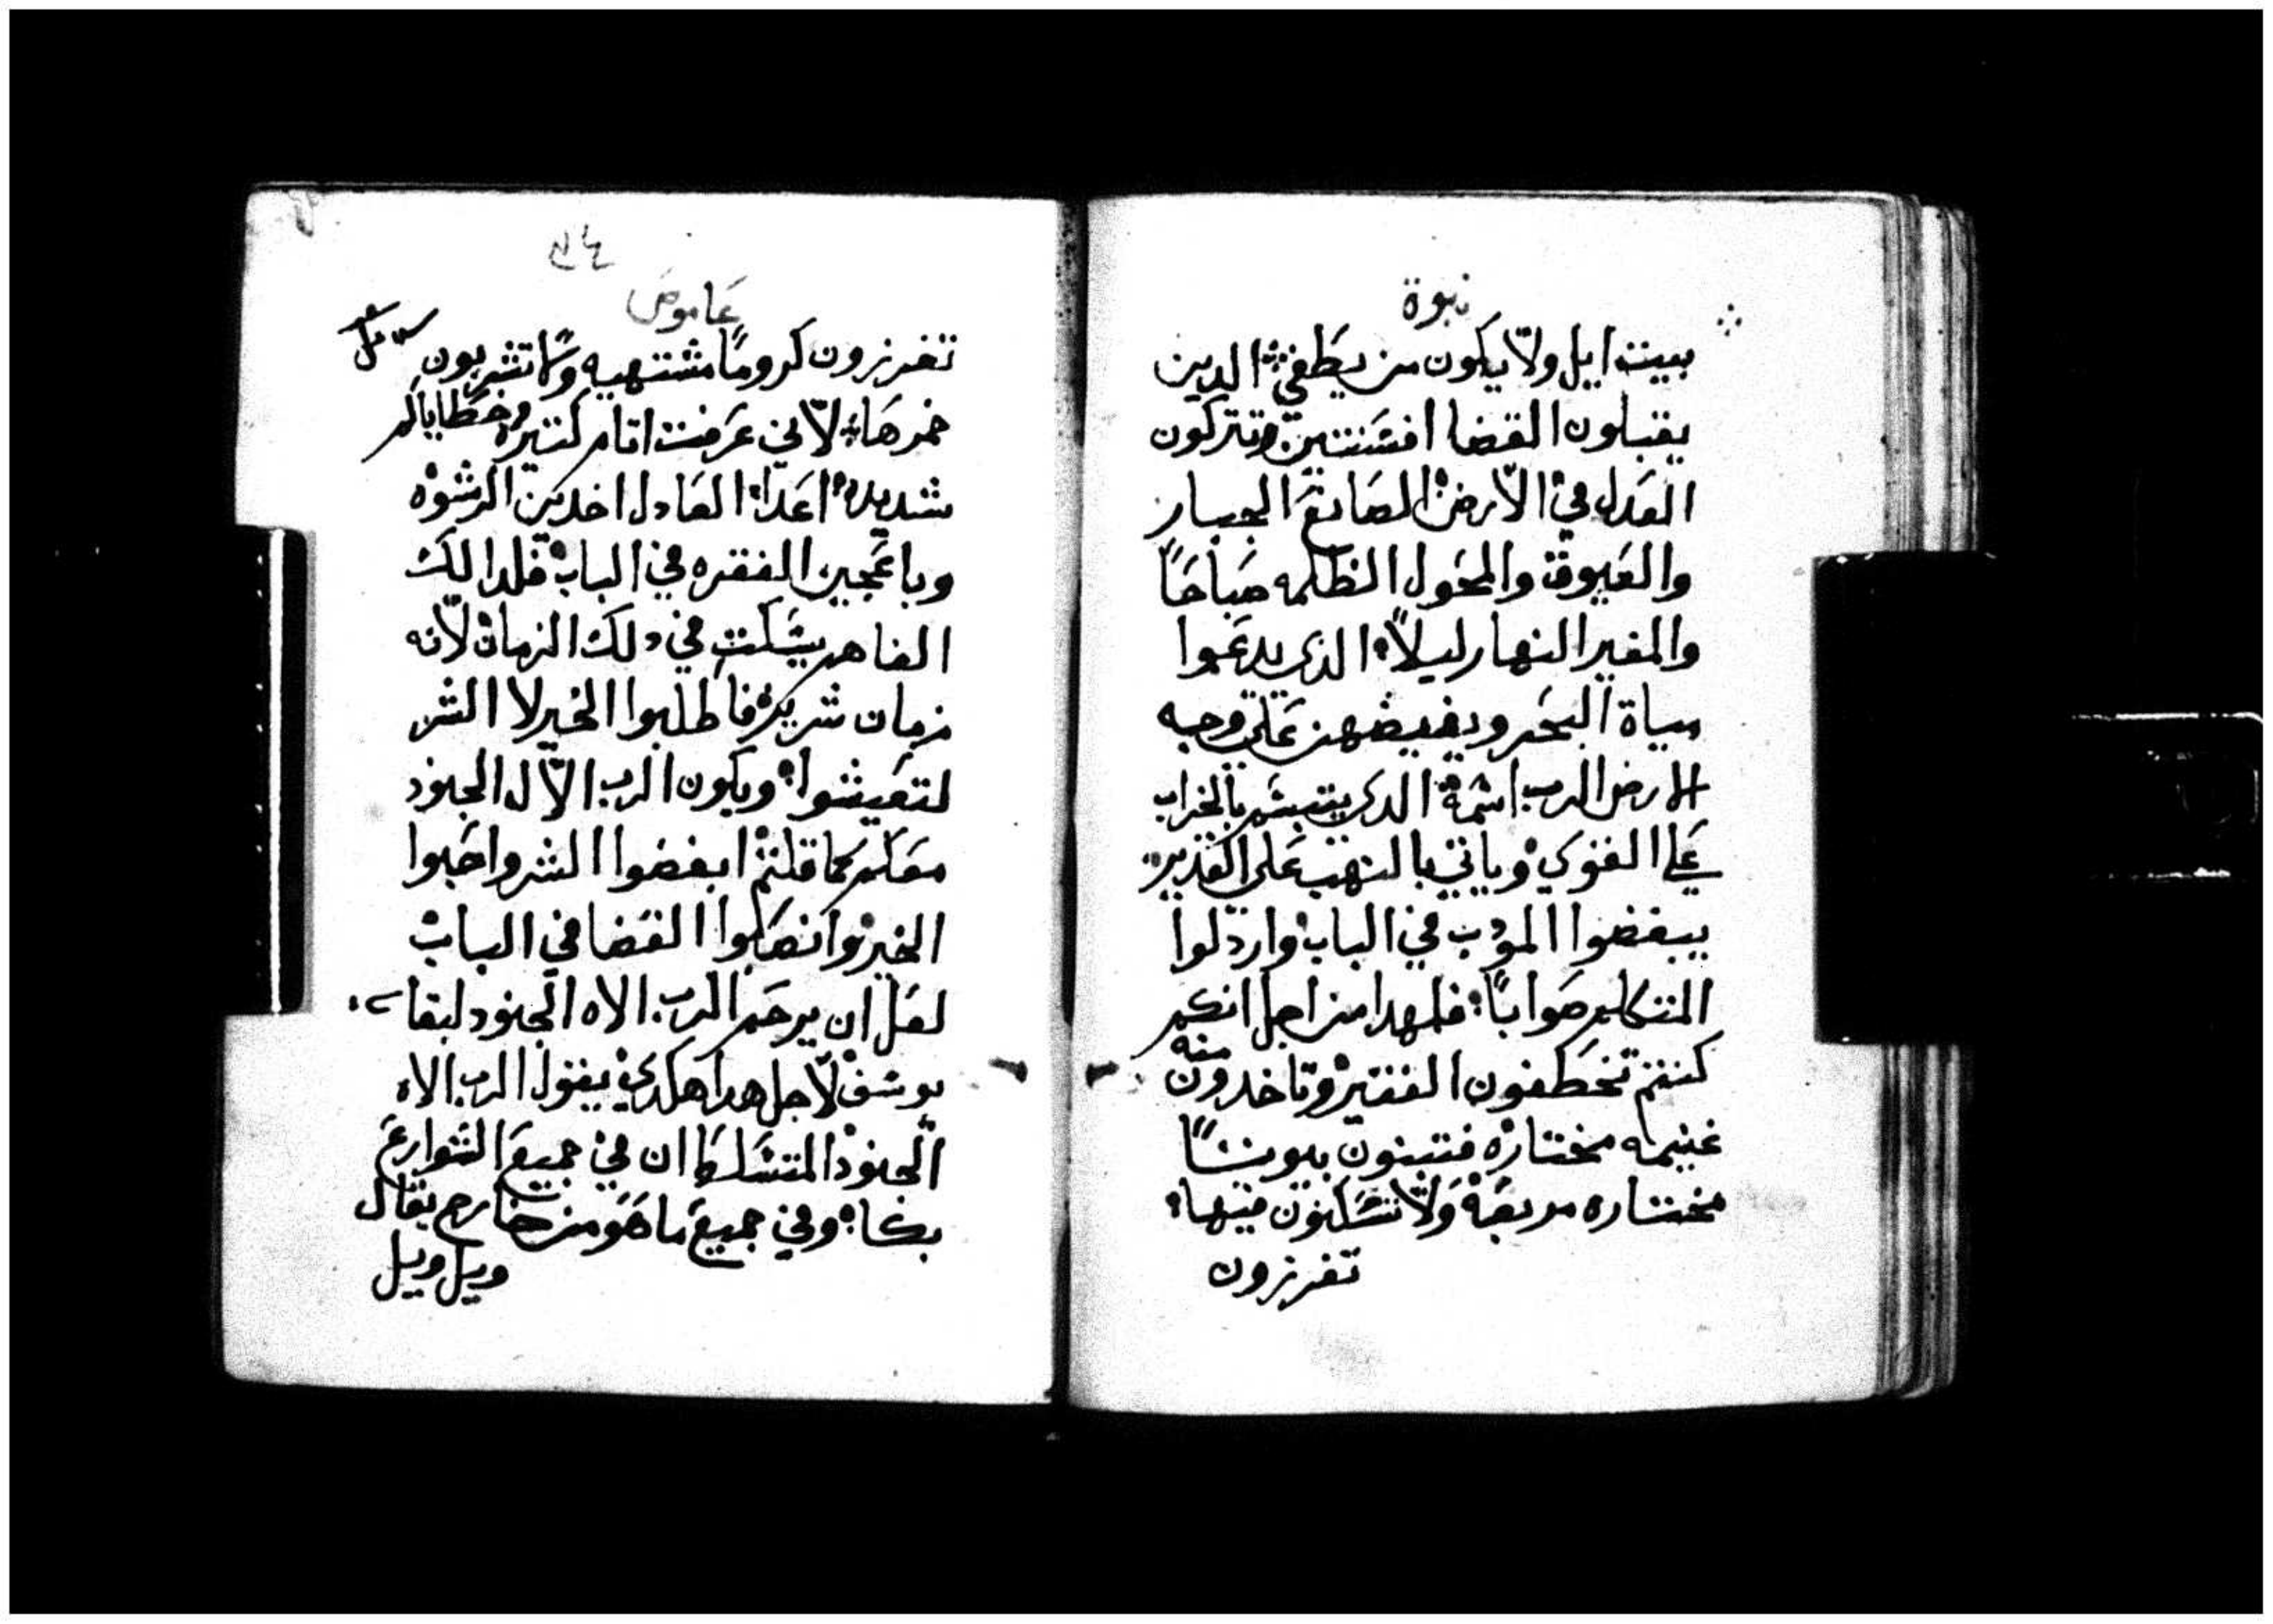 نبوة
ببيت ايل ولا يكون من يطفي الدين
يقبلون القضا افسنتين وتتركون
العدل في الارض الصانع الجبار
والعيوق والمحول الظلمه صباحًا
والمغير النهار ليلاً الذى يدعوا
مياة البحر ويفيضهن على وجه
الارض الرب اسمة الدى يتبسم بالخراب
على القوي وياتي بالنهب على القدير
يبغضوا المودب في الباب واردلوا
المتكلم صوابًا فلهدا من اجل انكم
كنتم تخطفون الفقير وتاخدون منه
غنيمه مختارة فتبنون بيوتًا
مختاره مربعة ولا تسكنون فيها
تغرزون
عاموص
تغرزون كرومًا مشتهيه وما تشربون
خمرها لاني عرفت اتامكم كتيره وخطاياكم
شديده اعدا العادل اخدين الرشوه
وباعجين الفقره في الباب فلدالك
الفاهم يسكت في دلك الزمان لانه
زمان شريره فاطلبوا الخير لا الشر
لتعيشوا ويكون الرب الاله الجنود
معكم كما قلتم ابغضوا الشر واحبوا
الخير وانصبوا القضا في الباب
لعل ان يرحم الرب الاه الجنود لبقا
يوسف لاجل هدا هكدي يقول الرب الاه
الجنود المتسلط ان في جميع الشوارع
بكا وفي جميع ما هو من خارج يقال
ويل ويل